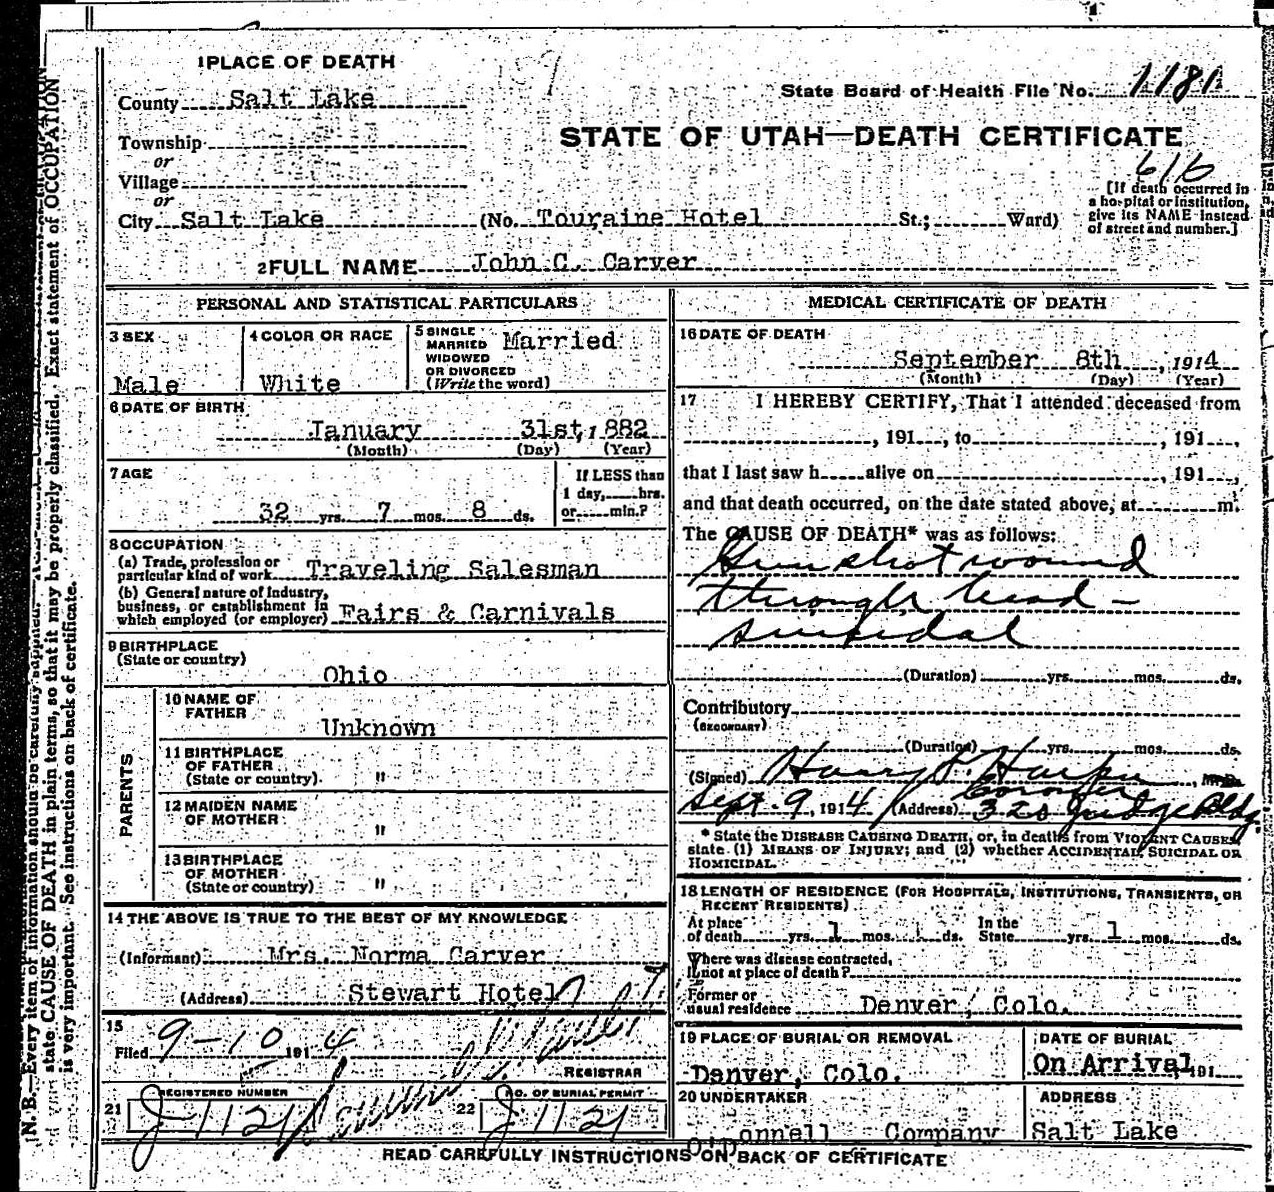 1 PLACE OF DEATH
County Salt Lake
State Board of Health File No. 1181
Township
or
Village
or
STATE OF UTAH—DEATH CERTIFICATE
616
City Salt Lake (No. Touraine Hotel St.; Ward)
[If death occurred in
a hospital or institution,
give its NAME instead
of street and number.]
2 FULL NAME John C. Carver
PERSONAL AND STATISTICAL PARTICULARS
3 SEX
Male
4 COLOR OR RACE
White
5 SINGLE
MARRIED
WIDOWED
OR DIVORCED
(Write the word)
Married
6 DATE OF BIRTH
January 31st, 1882
(Month) (Day) (Year)
7 AGE
32 yrs. 7 mos. 8 ds.
If LESS than
1 day, hrs.
or min.?
8 OCCUPATION
(a) Trade, profession or
particular kind of work Traveling Salesman
(b) General nature of Industry,
business, or establishment in
which employed (or employer) Fairs & Carnivals
9 BIRTHPLACE
(State or country)
Ohio
PARENTS
10 NAME OF
FATHER
Unknown
11 BIRTHPLACE
OF FATHER
(State or country) "
12 MAIDEN NAME
OF MOTHER "
13 BIRTHPLACE
OF MOTHER
(State or country) "
14 THE ABOVE IS TRUE TO THE BEST OF MY KNOWLEDGE
(Informant) Mrs. Norma Carver
(Address) Stewart Hotel
15
Filed 9-10 1914
REGISTRAR
REGISTERED NUMBER
21 J-1121
NO. OF BURIAL PERMIT
22 J-1121
MEDICAL CERTIFICATE OF DEATH
16 DATE OF DEATH
September 8th, 1914
(Month) (Day) (Year)
17 I HEREBY CERTIFY, That I attended deceased from
, 191 , to , 191 ,
that I last saw h alive on , 191 ,
and that death occurred, on the date stated above, at m.
The CAUSE OF DEATH* was as follows:
Gun shot wound
through head —
suicidal
(Duration) yrs. mos. ds.
Contributory
(SECONDARY)
(Duration) yrs. mos. ds.
(Signed) Harry S. Harper M.D.
Coroner
Sept. 9, 1914 (Address) 320 Judge Bldg.
* State the DISEASE CAUSING DEATH, or, in deaths from VIOLENT CAUSES,
state (1) MEANS OF INJURY; and (2) whether ACCIDENTAL, SUICIDAL OR
HOMICIDAL.
18 LENGTH OF RESIDENCE (FOR HOSPITALS, INSTITUTIONS, TRANSIENTS, OR
RECENT RESIDENTS)
At place
of death yrs. 1 mos. ds.
In the
State yrs. 1 mos. ds.
Where was disease contracted,
if not at place of death?
Former or
usual residence Denver, Colo.
19 PLACE OF BURIAL OR REMOVAL
Denver, Colo.
DATE OF BURIAL
On Arrival, 191
20 UNDERTAKER
O'Donnell Company
ADDRESS
Salt Lake
READ CAREFULLY INSTRUCTIONS ON BACK OF CERTIFICATE
N. B.—Every item of information should be carefully supplied.
state CAUSE OF DEATH in plain terms, so that it may be properly classified. Exact statement of OCCUPATION
is very important. See instructions on back of certificate.